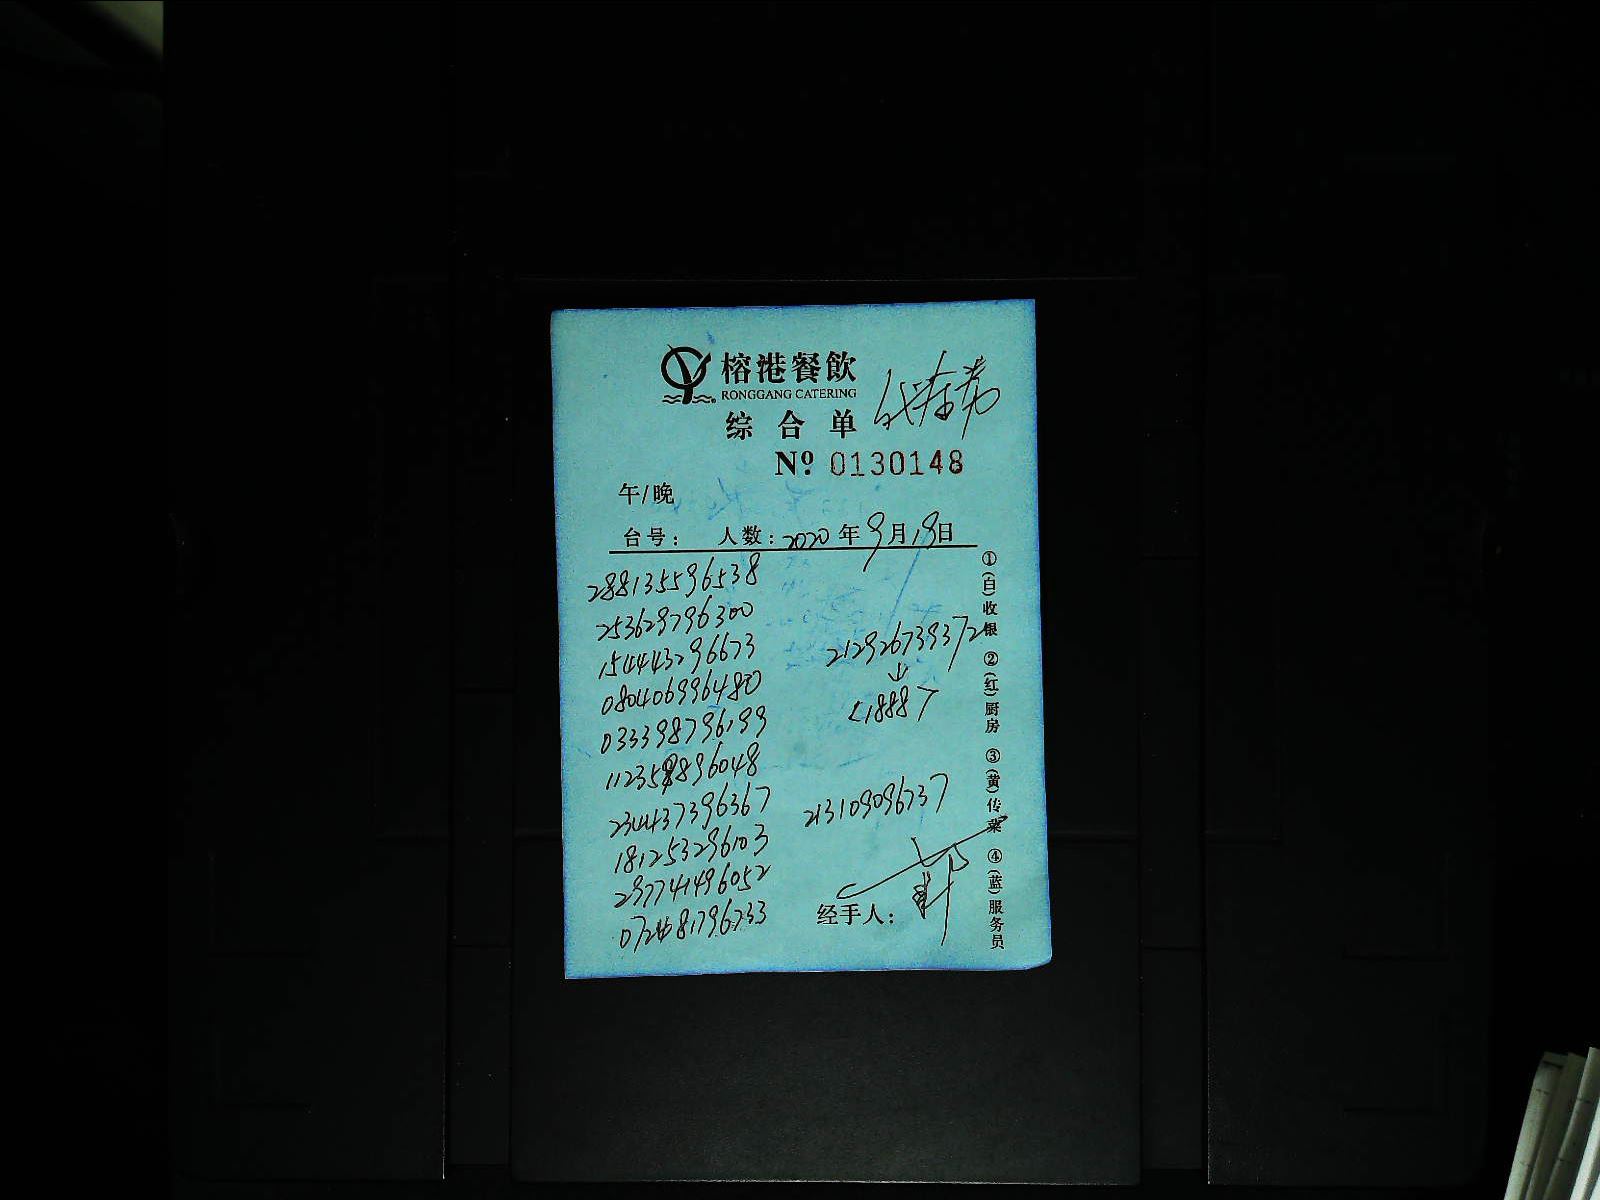 榕港餐飲
RONGGANG CATERING
综合单
Nº 0130148
午/晚
台号: 人数: 2020年9月19日
288135596538
253629796300
154443296673
080406996480
033398796199
112358896048
234437396367
181253296103
297741496052
212926739372
↓
<1888>
213109096737
经手人:
①(白)收银 ②(红)厨房 ③(黄)传菜 ④(蓝)服务员